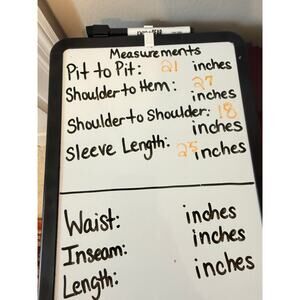 Measurements
Pit to Pit: 21 inches
Shoulder to Hem: 27 inches
Shoulder to Shoulder: 18 inches
Sleeve Length: 25 inches
Waist: inches
Inseam: inches
Length: inches